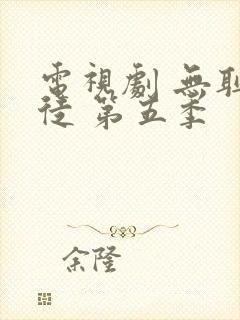 電視劇 無恥
徒 第五季
余隆